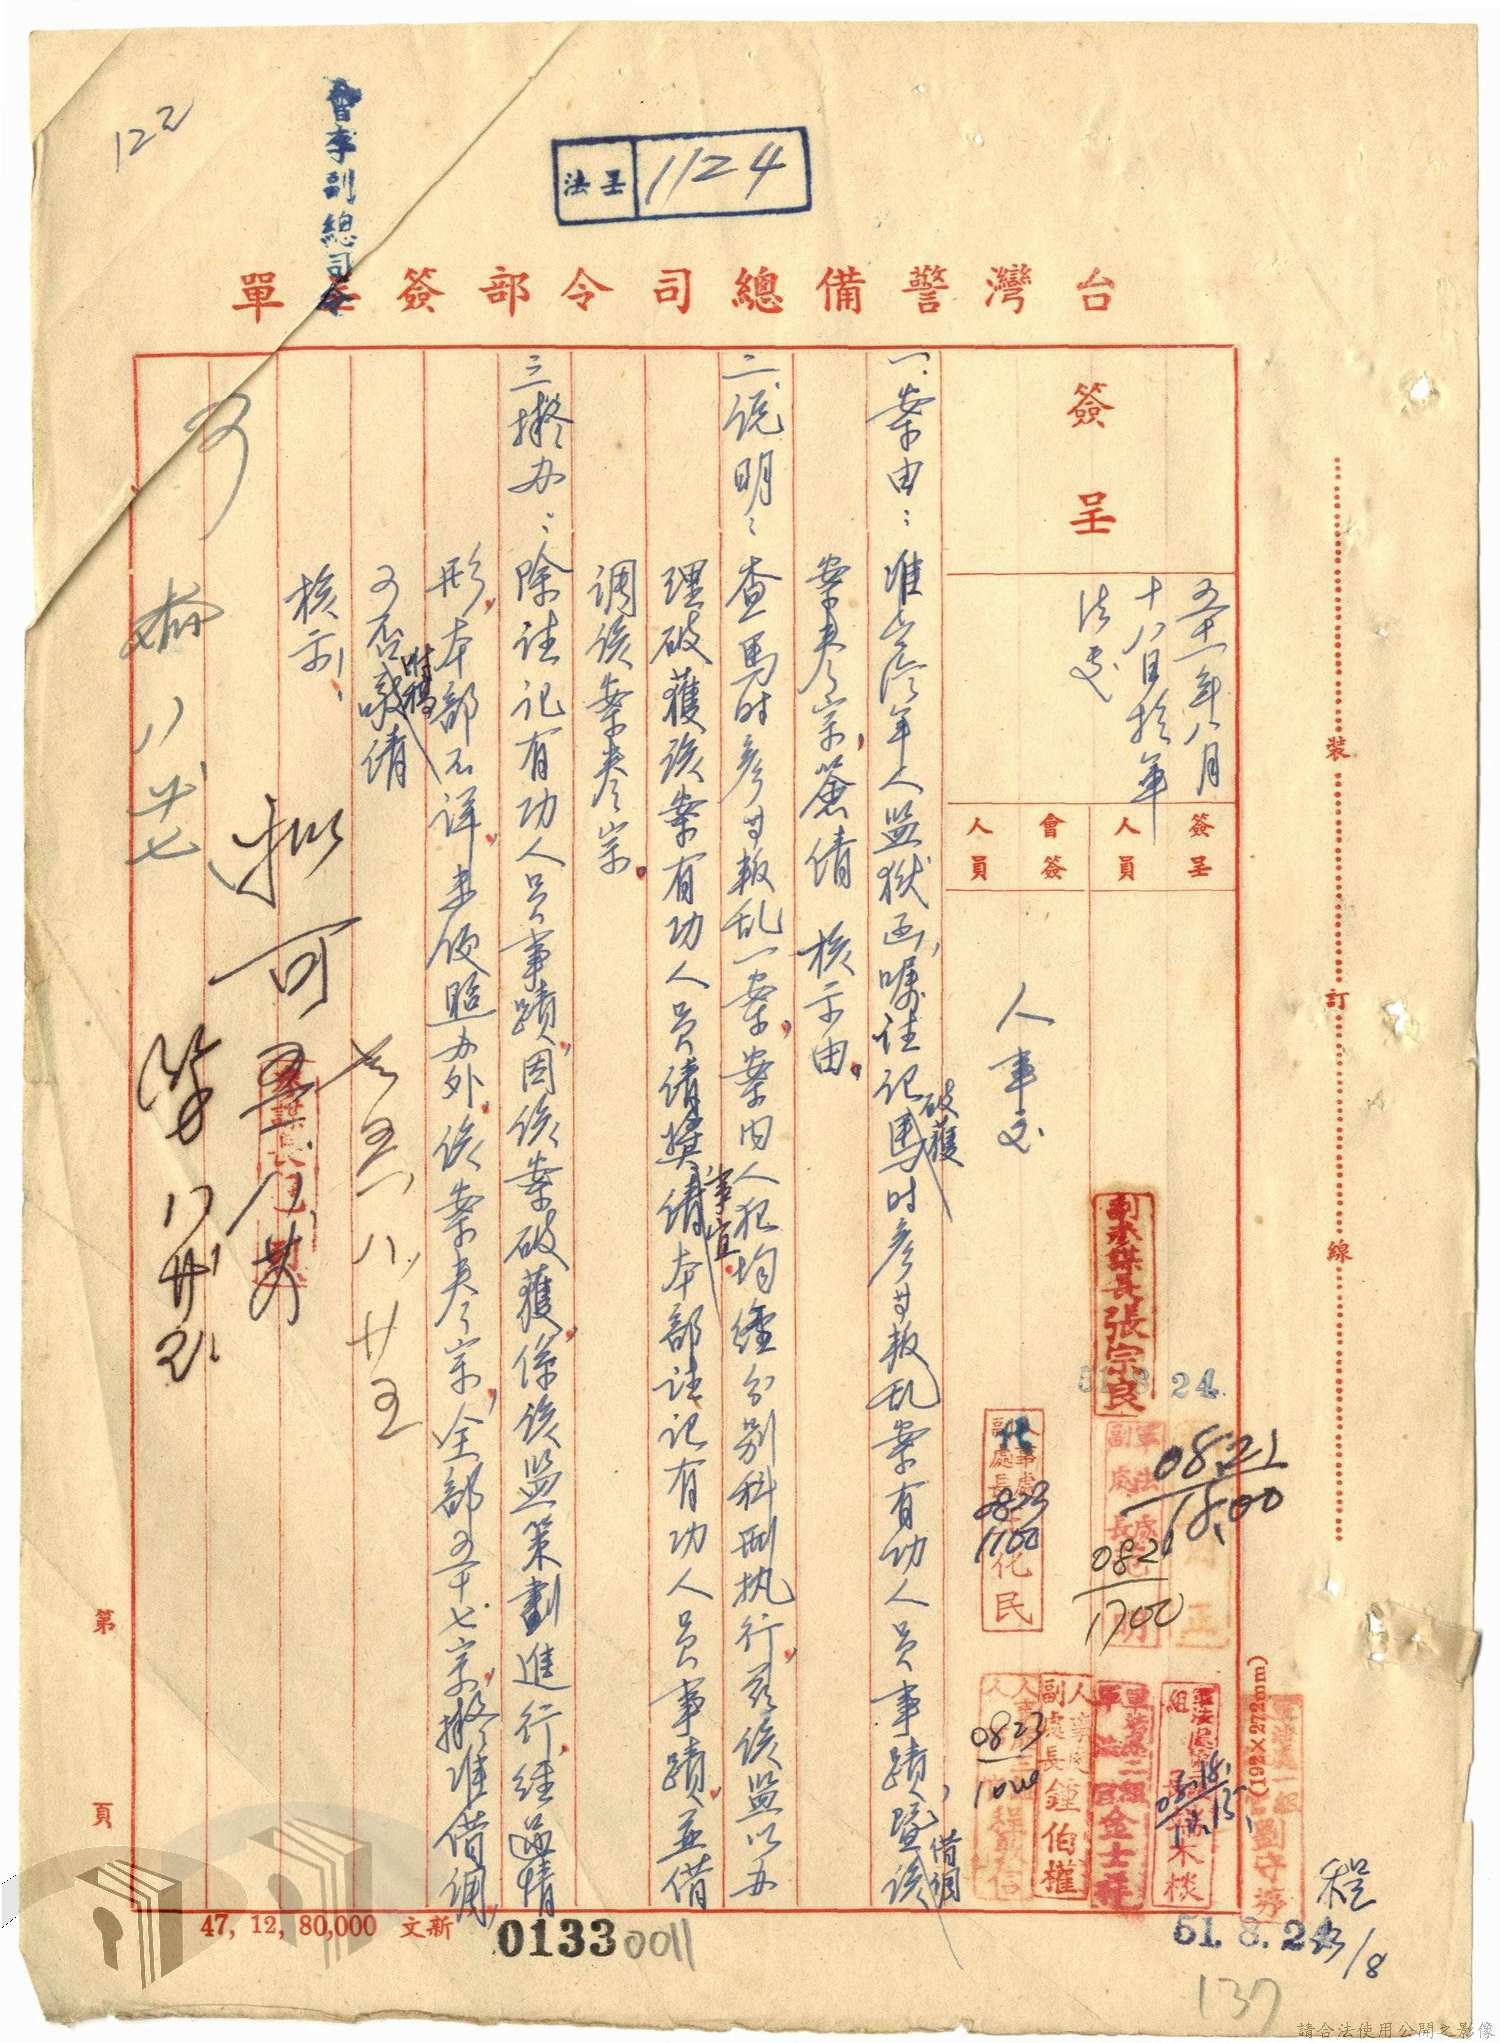 122
會李副總司令
法呈 1124
台灣警備總司令部簽呈單
簽呈
五十一年八月
十八日於軍
法處
簽呈人員
會簽人員
人事處
一、案由：准台灣軍人監獄函，囑註記破獲馬时彥等叛乱案有功人員事蹟，暨借調該
案卷宗，簽請 核示由。
二、說明：查馬时彥等叛乱一案，案内人犯均經分别科刑执行，茲該監以办
理破獲該案有功人員請獎事宜，請本部註記有功人員事蹟，並借
调該案卷宗。
三、擬办：除註記有功人員事蹟，因該案破獲，係該監策劃進行，經過情
形，本部不詳，未便照办外，該案卷宗，全部五十七宗，擬准借调，
可否附稿敬請
核示！
可
八廿七
擬可
五一、八、廿五
副參謀長張宗良
51.8.24.
0821
1800
0821
1700
0823
1100
化民
0823
1000
人事處副處長鍾伯權
金士
劉守
程
23/8
51.8.24
裝
訂
線
(192×272mm)
第
頁
47, 12, 80,000 文新
0133
0011
137
請合法使用公開之影像